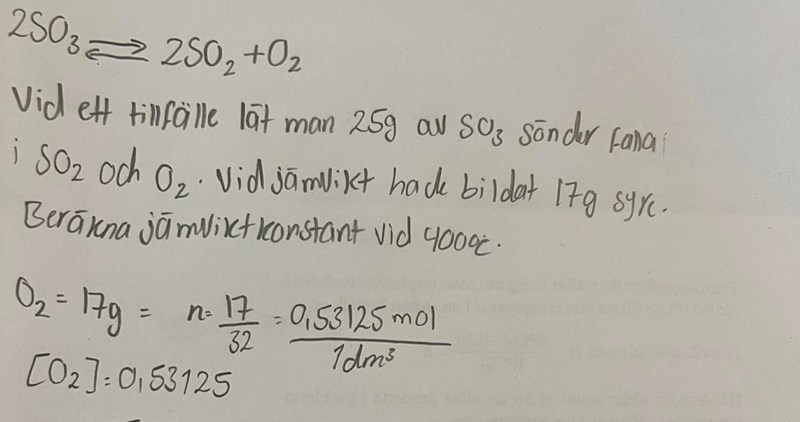 2SO₃ ⇌ 2SO₂ + O₂
Vid ett tillfälle lät man 25g av SO₃ sönder falla
i SO₂ och O₂. Vid jämvikt hade bildat 17g syre.
Beräkna jämviktkonstant vid 400°C.
O₂ = 17g = n = 17/32 = 0,53125 mol / 1dm³
[O₂] = 0,53125